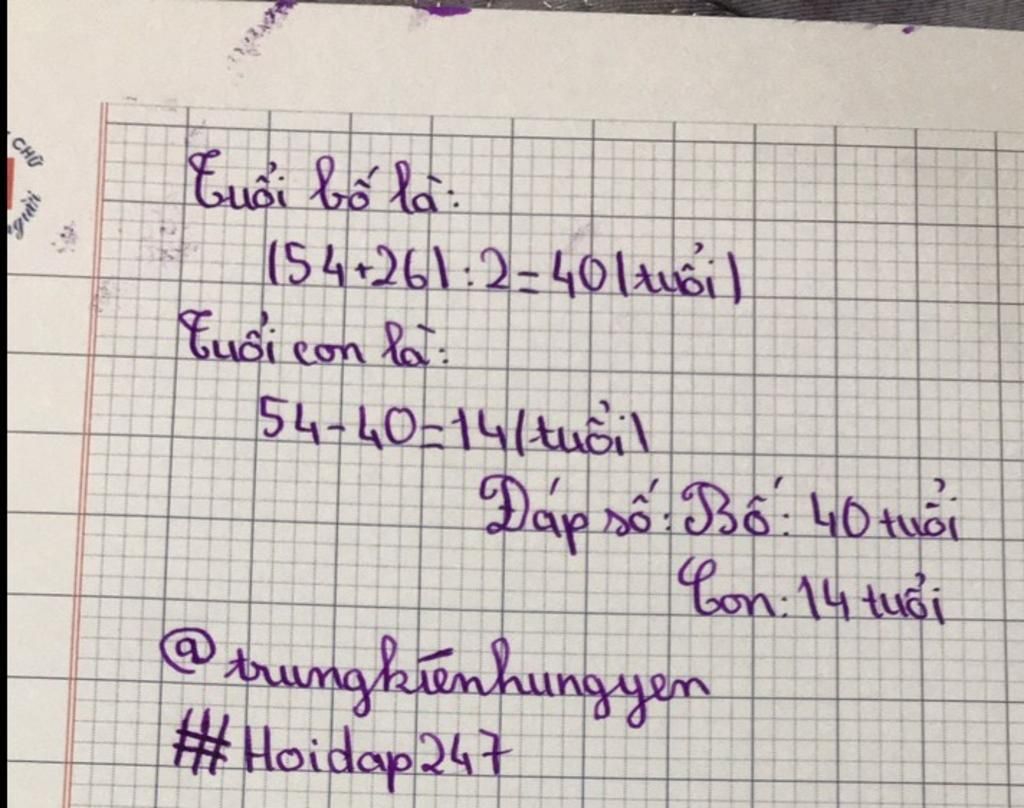 CHỮ
người
Tuổi bố là:
(54+26):2=40(tuổi)
Tuổi con là:
54-40=14(tuổi)
Đáp số: Bố: 40 tuổi
Con: 14 tuổi
@trungkiênhungyen
#Hoidap247